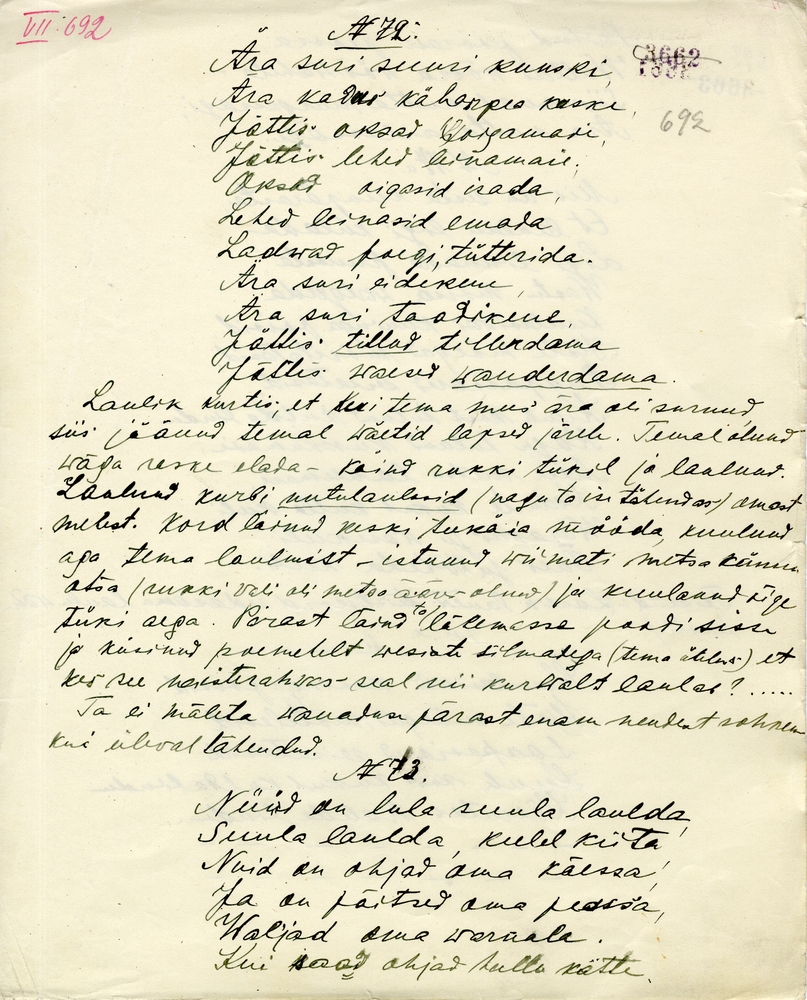 VII. 692
№ 72.
3662
692
Ära suri suuri kunski,
Ära kadus käharpea keske,
Jättis oksad
Jättis lehed leinamaie,
Oksad oigasid isada,
Lehed leinasid emada
Ladwad poegi, tütterida.
Ära suri eidekene,
Ära suri taadikene,
Jättis tillud tillerdama
Jättis waesed wanderdama.
Laulik kurtis, et kui tema mees ära oli surnud,
siis jäänud temal wäetid lapsed järele. Temal olnud
wäga reske elada – käind rukki tükil ja laulnud.
Laulnud kurbi nutulaulusid (nagu ta ise tähendas) omast
melest. Kord läinud keski teekäia mööda, kuulnud
aga tema laulmist – istunud wiimati metsa kännu
otsa (rukki väli oli metsa ääres olnud) ja kuulanud õige
tüki aega. Pärast läind ta poodi sisse
ja küsinud poemehelt wesiste silmadega (tema ütelus) et
kes see naisterahwas seal nii kurwalt laulab? .....
Ta ei mäleta wanaduse pärast enam nendest rohkem
kui üleval tähendud.
№ 73.
Nüüd on lula suula laulda,
Suula laulda, keelel kiita
Nüid on ohjad oma käessa,
Ja on päitsed oma peassa,
Waljad oma warnala.
Kui saad ohjad hullu kätte,